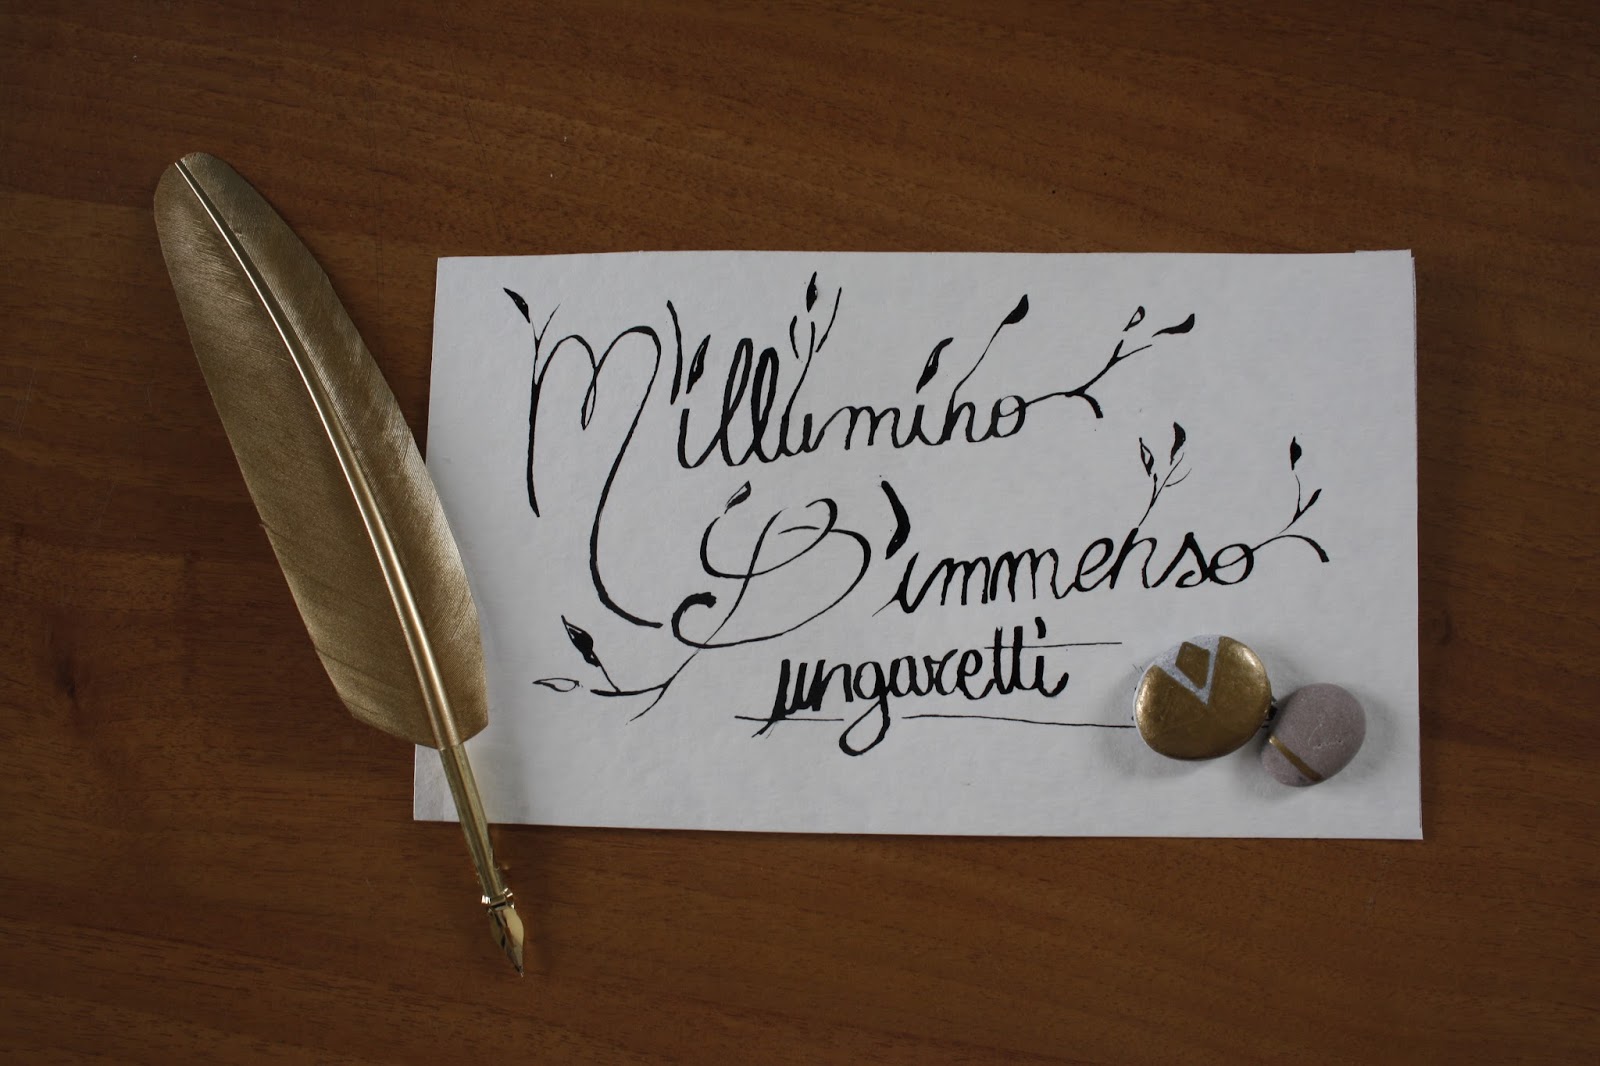 M'illumino
D'immenso
ungaretti